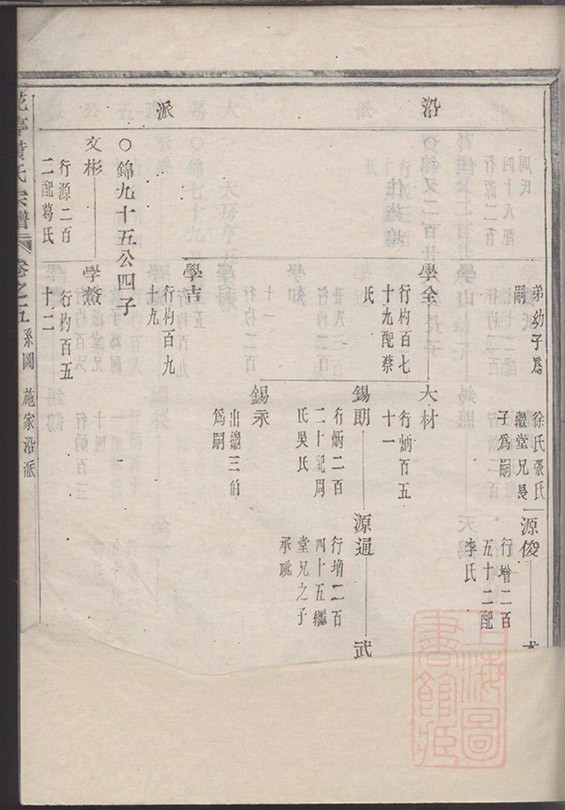 沿
派
周氏
四十八配
行源二百
弟幼子爲
嗣
徐氏張氏
繼堂兄長
子爲嗣
源俊
行增二百
五十二配
李氏
學全
行杓百七
十九配蔡
氏
大材
行炳百五
十一
錫朗
行炳二百
二十配周
氏吳氏
源通
行增二百
四十五繼
堂兄之子
承祧
武
錫永
出繼三伯
爲嗣
學吉
行杓百九
十九
〇錦九十五公四子
文彬
行源二百
二配葛氏
學鰲
行杓百五
十二
黄氏宗譜
卷之五
系圖
施家沿派
上海圖
書館藏